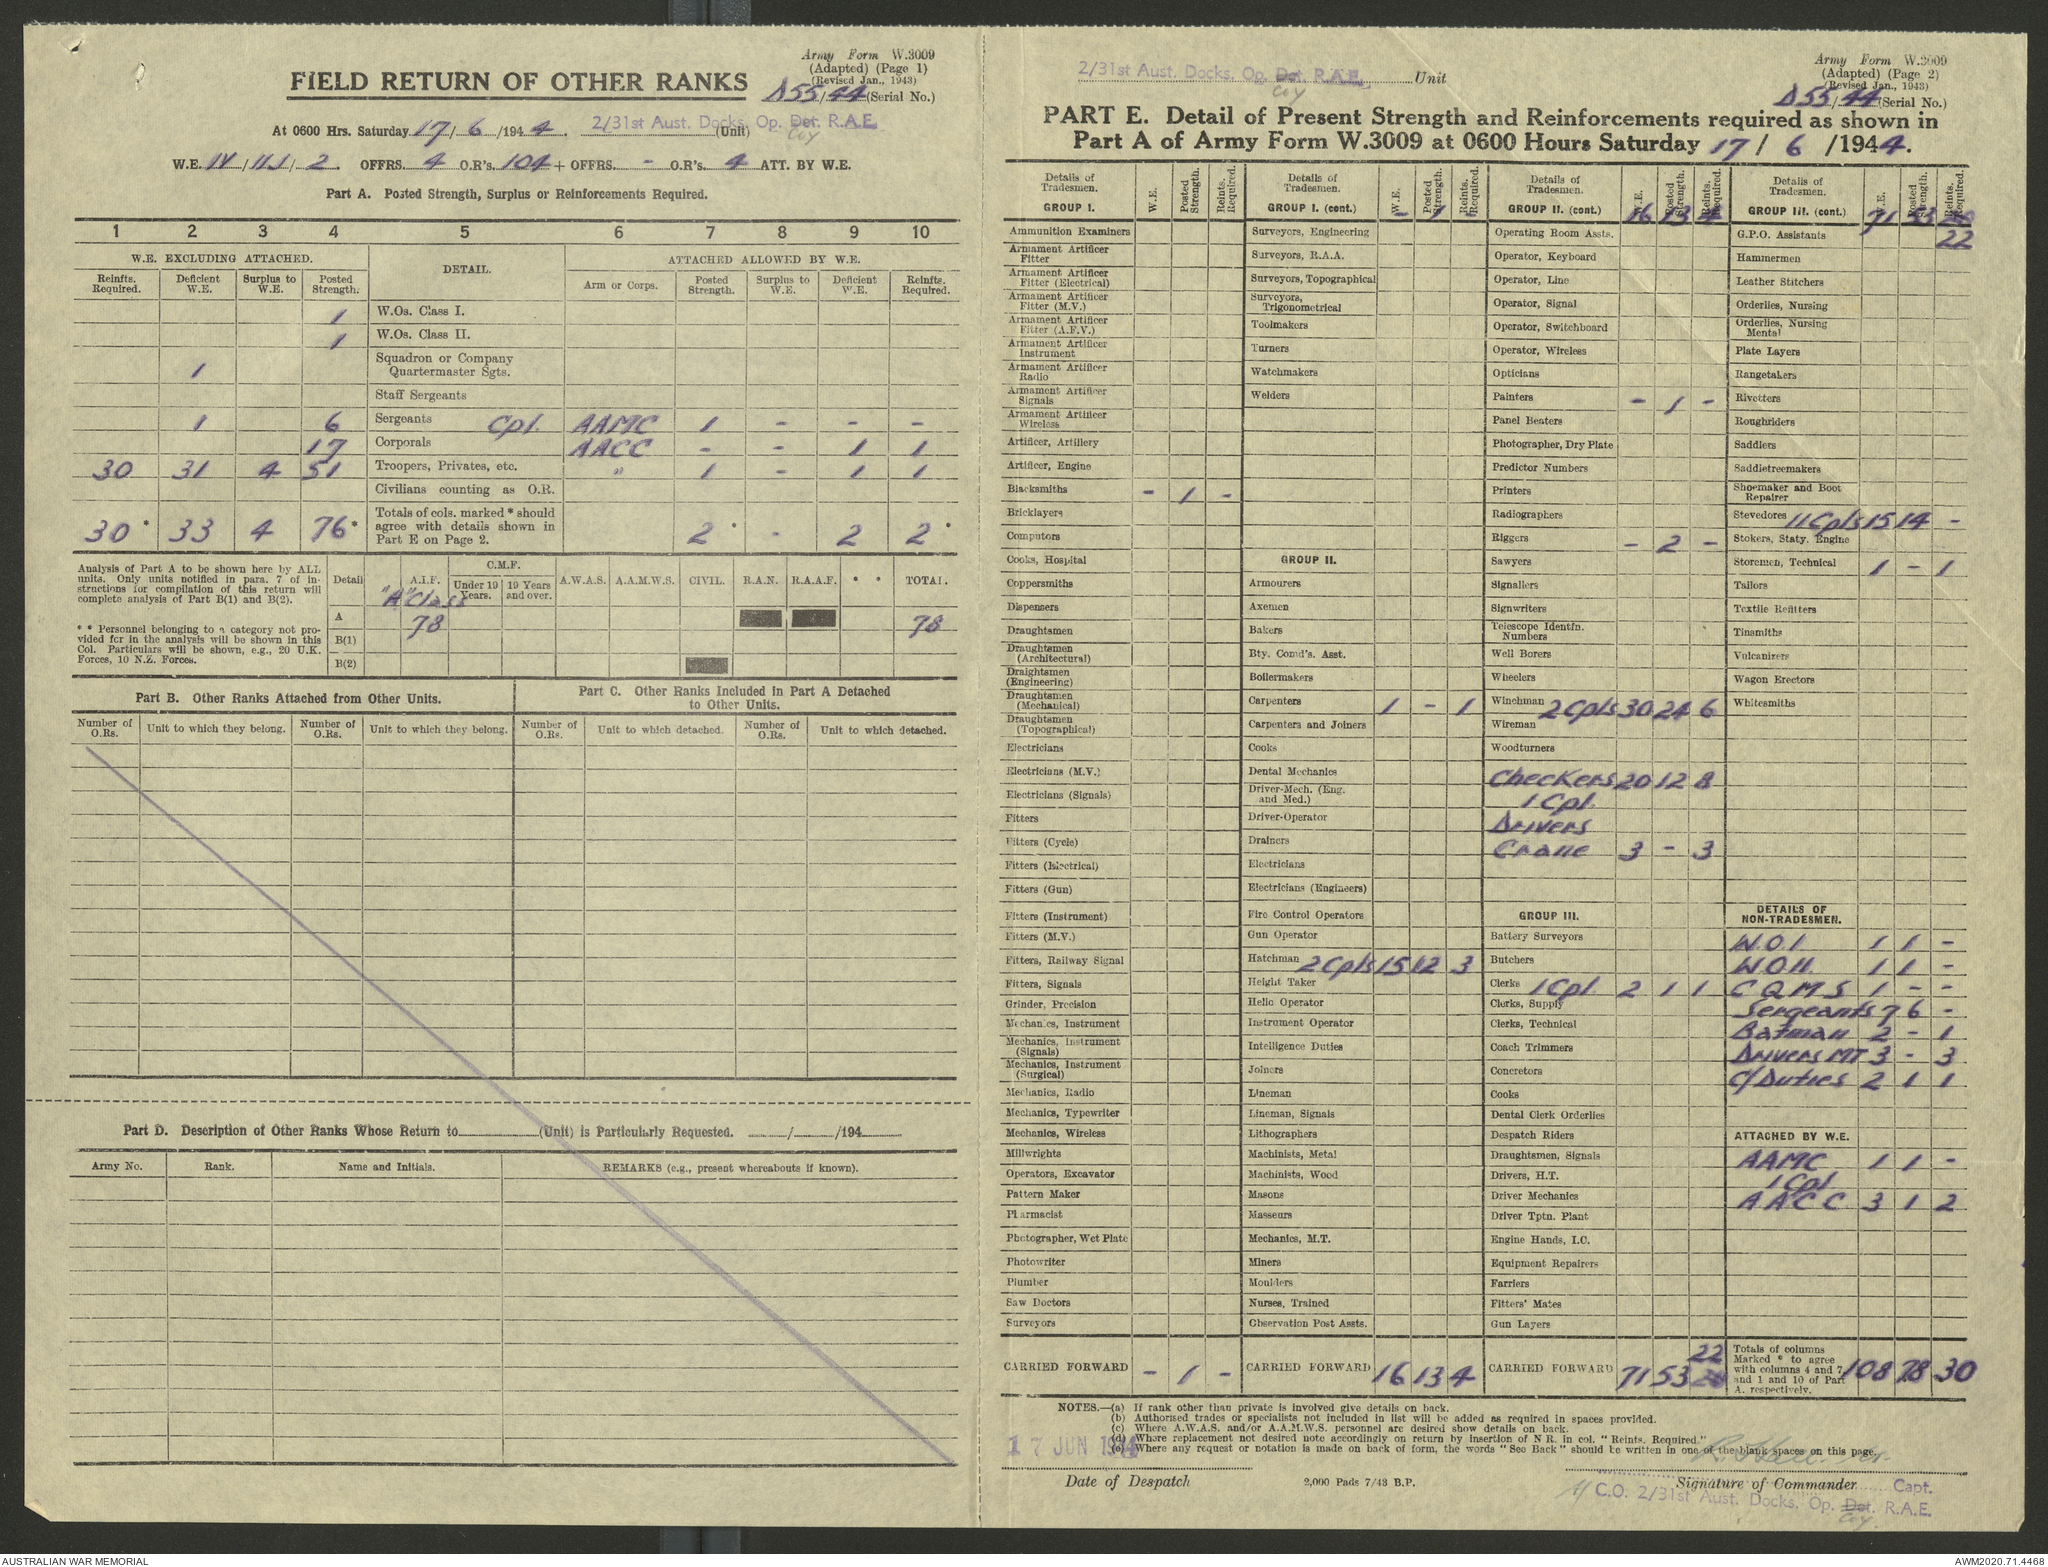 Army Form W.3009
(Adapted) (Page 1)
(Revised Jan., 1943)
FIELD RETURN OF OTHER RANKS
D55/44 (Serial No.)
At 0600 Hrs. Saturday 17/6/1944. 2/31st Aust. Docks. Op. Det. R.A.E. (Unit)
Coy
W.E. IV/11J/2. OFFRS. 4 O.R's. 104 + OFFRS. - O.R's. 4 ATT. BY W.E.
Part A. Posted Strength, Surplus or Reinforcements Required.
1 2 3 4 5 6 7 8 9 10
W.E. EXCLUDING ATTACHED. DETAIL. ATTACHED ALLOWED BY W.E.
Reinfts. Required. Deficient W.E. Surplus to W.E. Posted Strength. Arm or Corps. Posted Strength. Surplus to W.E. Deficient W.E. Reinfts. Required.
1 W.Os. Class I.
1 W.Os. Class II.
1 Squadron or Company Quartermaster Sgts.
Staff Sergeants
1 6 Sergeants Cpl. AAMC 1 - - -
17 Corporals AACC - - 1 1
30 31 4 51 Troopers, Privates, etc. " 1 - 1 1
Civilians counting as O.R.
30* 33 4 76* Totals of cols. marked * should agree with details shown in Part E on Page 2. 2* - 2 2*
Analysis of Part A to be shown here by ALL
units. Only units notified in para. 7 of in-
structions for compilation of this return will
complete analysis of Part B(1) and B(2).
* * Personnel belonging to a category not pro-
vided for in the analysis will be shown in this
Col. Particulars will be shown, e.g., 20 U.K.
Forces, 10 N.Z. Forces.
Detail A.I.F. C.M.F. Under 19 Years. 19 Years and over. A.W.A.S. A.A.M.W.S. CIVIL. R.A.N. R.A.A.F. * * TOTAL
"A" Class
A 78 78
B(1)
B(2)
Part B. Other Ranks Attached from Other Units.
Part C. Other Ranks Included in Part A Detached
to Other Units.
Number of O.Rs. Unit to which they belong. Number of O.Rs. Unit to which they belong. Number of O.Rs. Unit to which detached. Number of O.Rs. Unit to which detached.
Part D. Description of Other Ranks Whose Return to (Unit) is Particularly Requested. / /194
Army No. Rank. Name and Initials. REMARKS (e.g., present whereabouts if known).
2/31st Aust. Docks. Op. Det. R.A.E. Unit
Coy
Army Form W.3009
(Adapted) (Page 2)
(Revised Jan., 1943)
D55/44 (Serial No.)
PART E. Detail of Present Strength and Reinforcements required as shown in
Part A of Army Form W.3009 at 0600 Hours Saturday 17/6/1944.
Details of Tradesmen. W.E. Posted Strength. Reints. Required.
GROUP I.
Ammunition Examiners
Armament Artificer Fitter
Armament Artificer Fitter (Electrical)
Armament Artificer Fitter (M.V.)
Armament Artificer Fitter (A.F.V.)
Armament Artificer Instrument
Armament Artificer Radio
Armament Artificer Signals
Armament Artificer Wireless
Artificer, Artillery
Artificer, Engine
Blacksmiths - 1 -
Bricklayers
Computors
Cooks, Hospital
Coppersmiths
Dispensers
Draughtsmen
Draughtsmen (Architectural)
Draightsmen (Engineering)
Draughtsmen (Mechanical)
Draughtsmen (Topographical)
Electricians
Electricians (M.V.)
Electricians (Signals)
Fitters
Fitters (Cycle)
Fitters (Electrical)
Fitters (Gun)
Fitters (Instrument)
Fitters (M.V.)
Fitters, Railway Signal
Fitters, Signals
Grinder, Precision
Mechanics, Instrument
Mechanics, Instrument (Signals)
Mechanics, Instrument (Surgical)
Mechanics, Radio
Mechanics, Typewriter
Mechanics, Wireless
Millwrights
Operators, Excavator
Pattern Maker
Pharmacist
Photographer, Wet Plate
Photowriter
Plumber
Saw Doctors
Surveyors
CARRIED FORWARD - 1 -
Details of Tradesmen. W.E. Posted Strength. Reints. Required.
GROUP I. (cont.) - 1 -
Surveyors, Engineering
Surveyors, R.A.A.
Surveyors, Topographical
Surveyors, Trigonometrical
Toolmakers
Turners
Watchmakers
Welders
GROUP II.
Armourers
Axemen
Bakers
Bty. Comd's. Asst.
Boilermakers
Carpenters 1 - 1
Carpenters and Joiners
Cooks
Dental Mechanics
Driver-Mech. (Eng. and Med.)
Driver-Operator
Drainers
Electricians
Electricians (Engineers)
Fire Control Operators
Gun Operator
Hatchman 2 Cpls 15 12 3
Height Taker
Helio Operator
Instrument Operator
Intelligence Duties
Joiners
Lineman
Lineman, Signals
Lithographers
Machinists, Metal
Machinists, Wood
Masons
Masseurs
Mechanics, M.T.
Miners
Moulders
Nurses, Trained
Observation Post Assts.
CARRIED FORWARD 16 13 4
Details of Tradesmen. W.E. Posted Strength. Reints. Required.
GROUP II. (cont.) 16 13 4
Operating Room Assts.
Operator, Keyboard
Operator, Line
Operator, Signal
Operator, Switchboard
Operator, Wireless
Opticians
Painters - 1 -
Panel Beaters
Photographer, Dry Plate
Predictor Numbers
Printers
Radiographers
Riggers - 2 -
Sawyers
Signallers
Signwriters
Telescope Identfn. Numbers
Well Borers
Wheelers
Winchman 2 Cpls 30 24 6
Wireman
Woodturners
Checkers 20 12 8
1 Cpl.
Drivers
Crane 3 - 3
GROUP III.
Battery Surveyors
Butchers
Clerks 1 Cpl 2 1 1
Clerks, Supply
Clerks, Technical
Coach Trimmers
Concretors
Cooks
Dental Clerk Orderlies
Despatch Riders
Draughtsmen, Signals
Drivers, H.T.
Driver Mechanics
Driver Tptn. Plant
Engine Hands, I.C.
Equipment Repairers
Farriers
Fitters' Mates
Gun Layers
22
CARRIED FORWARD 71 53
Details of Tradesmen. W.E. Posted Strength. Reints. Required.
GROUP III. (cont.) 71 53
22
G.P.O. Assistants
Hammermen
Leather Stitchers
Orderlies, Nursing
Orderlies, Nursing Mental
Plate Layers
Rangetakers
Rivetters
Roughriders
Saddlers
Saddletreemakers
Shoemaker and Boot Repairer
Stevedores 11 Cpls 15 14 -
Stokers, Staty. Engine
Storemen, Technical 1 - 1
Tailors
Textile Refitters
Tinsmiths
Vulcanizers
Wagon Erectors
Whitesmiths
DETAILS OF NON-TRADESMEN.
W.O.I 1 1 -
W.O.II. 1 1 -
C Q M S 1 - -
Sergeants 7 6 -
Batman 2 - 1
Drivers MT 3 - 3
C/Duties 2 1 1
ATTACHED BY W.E.
AAMC 1 1 -
1 Cpl
AACC 3 1 2
Totals of columns Marked * to agree with columns 4 and 7 and 1 and 10 of Part A. respectively. 108 78 30
NOTES.—(a) If rank other than private is involved give details on back.
(b) Authorised trades or specialists not included in list will be added as required in spaces provided.
(c) Where A.W.A.S. and/or A.A.M.W.S. personnel are desired show details on back.
(d) Where replacement not desired note accordingly on return by insertion of N R. in col. "Reints. Required."
(e) Where any request or notation is made on back of form, the words "See Back" should be written in one of the blank spaces on this page.
17 JUN 1944
Date of Despatch 2,000 Pads 7/43 B.P. Signature of Commander Capt.
C.O. 2/31st Aust. Docks. Op. Det. R.A.E.
Coy.
AUSTRALIAN WAR MEMORIAL AWM2020.71.4468